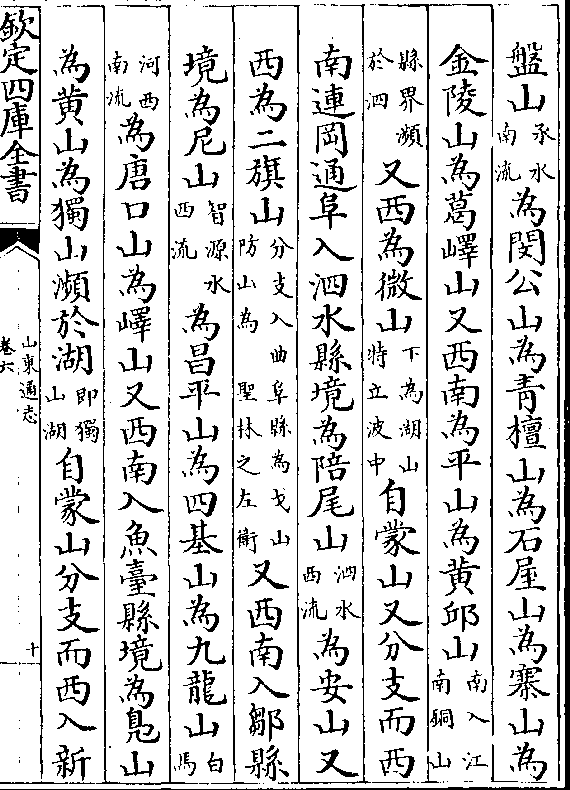 盤山承水南流為閔公山為青檀山為石屋山為寨山為
金陵山為葛嶧山又西南為平山為黄邱山南入江南銅山
縣界瀕於泗又西為微山下為湖山特立波中自蒙山又分支而西
南連岡通阜入泗水縣境為陪尾山泗水西流為安山又
西為二旗山分支入曲阜縣為戈山防山為聖林之左衛又西南入鄒縣
境為尼山智源水西流為昌平山為四基山為九龍山白馬
河西南流為唐口山為嶧山又西南入魚臺縣境為鳬山
為黄山為獨山瀕於湖即獨山湖自蒙山分支而西入新
欽定四庫全書
山東通志
卷六
十